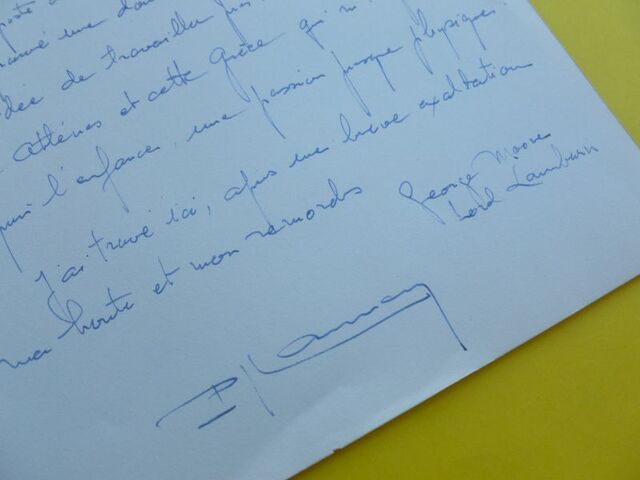 une
idée de travailler
Athènes et cette Grèce qui
l'enfance, une passion presque physique.
J'ai trouvé ici, après une brève exaltation
ma honte et mon remords
George Moore
Lord Lamburn